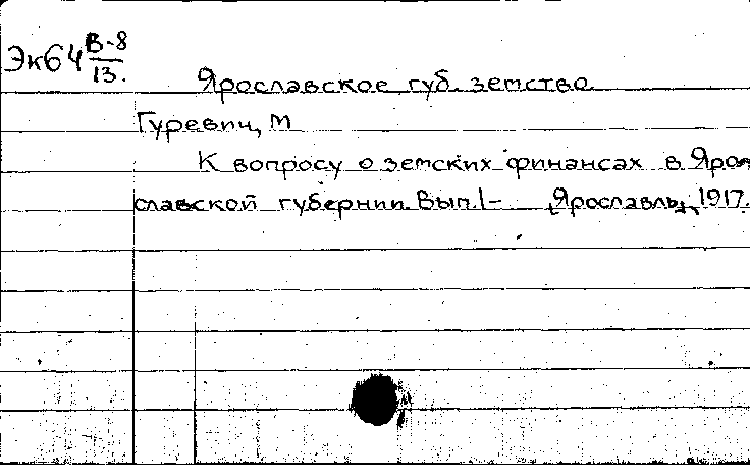 Эк64 В-8
13.
Ярославское губ. земство
Гуревич, М
К вопросу о земских финансах в Яро-
славской губернии. Вып. 1- [Ярославль], 1917.